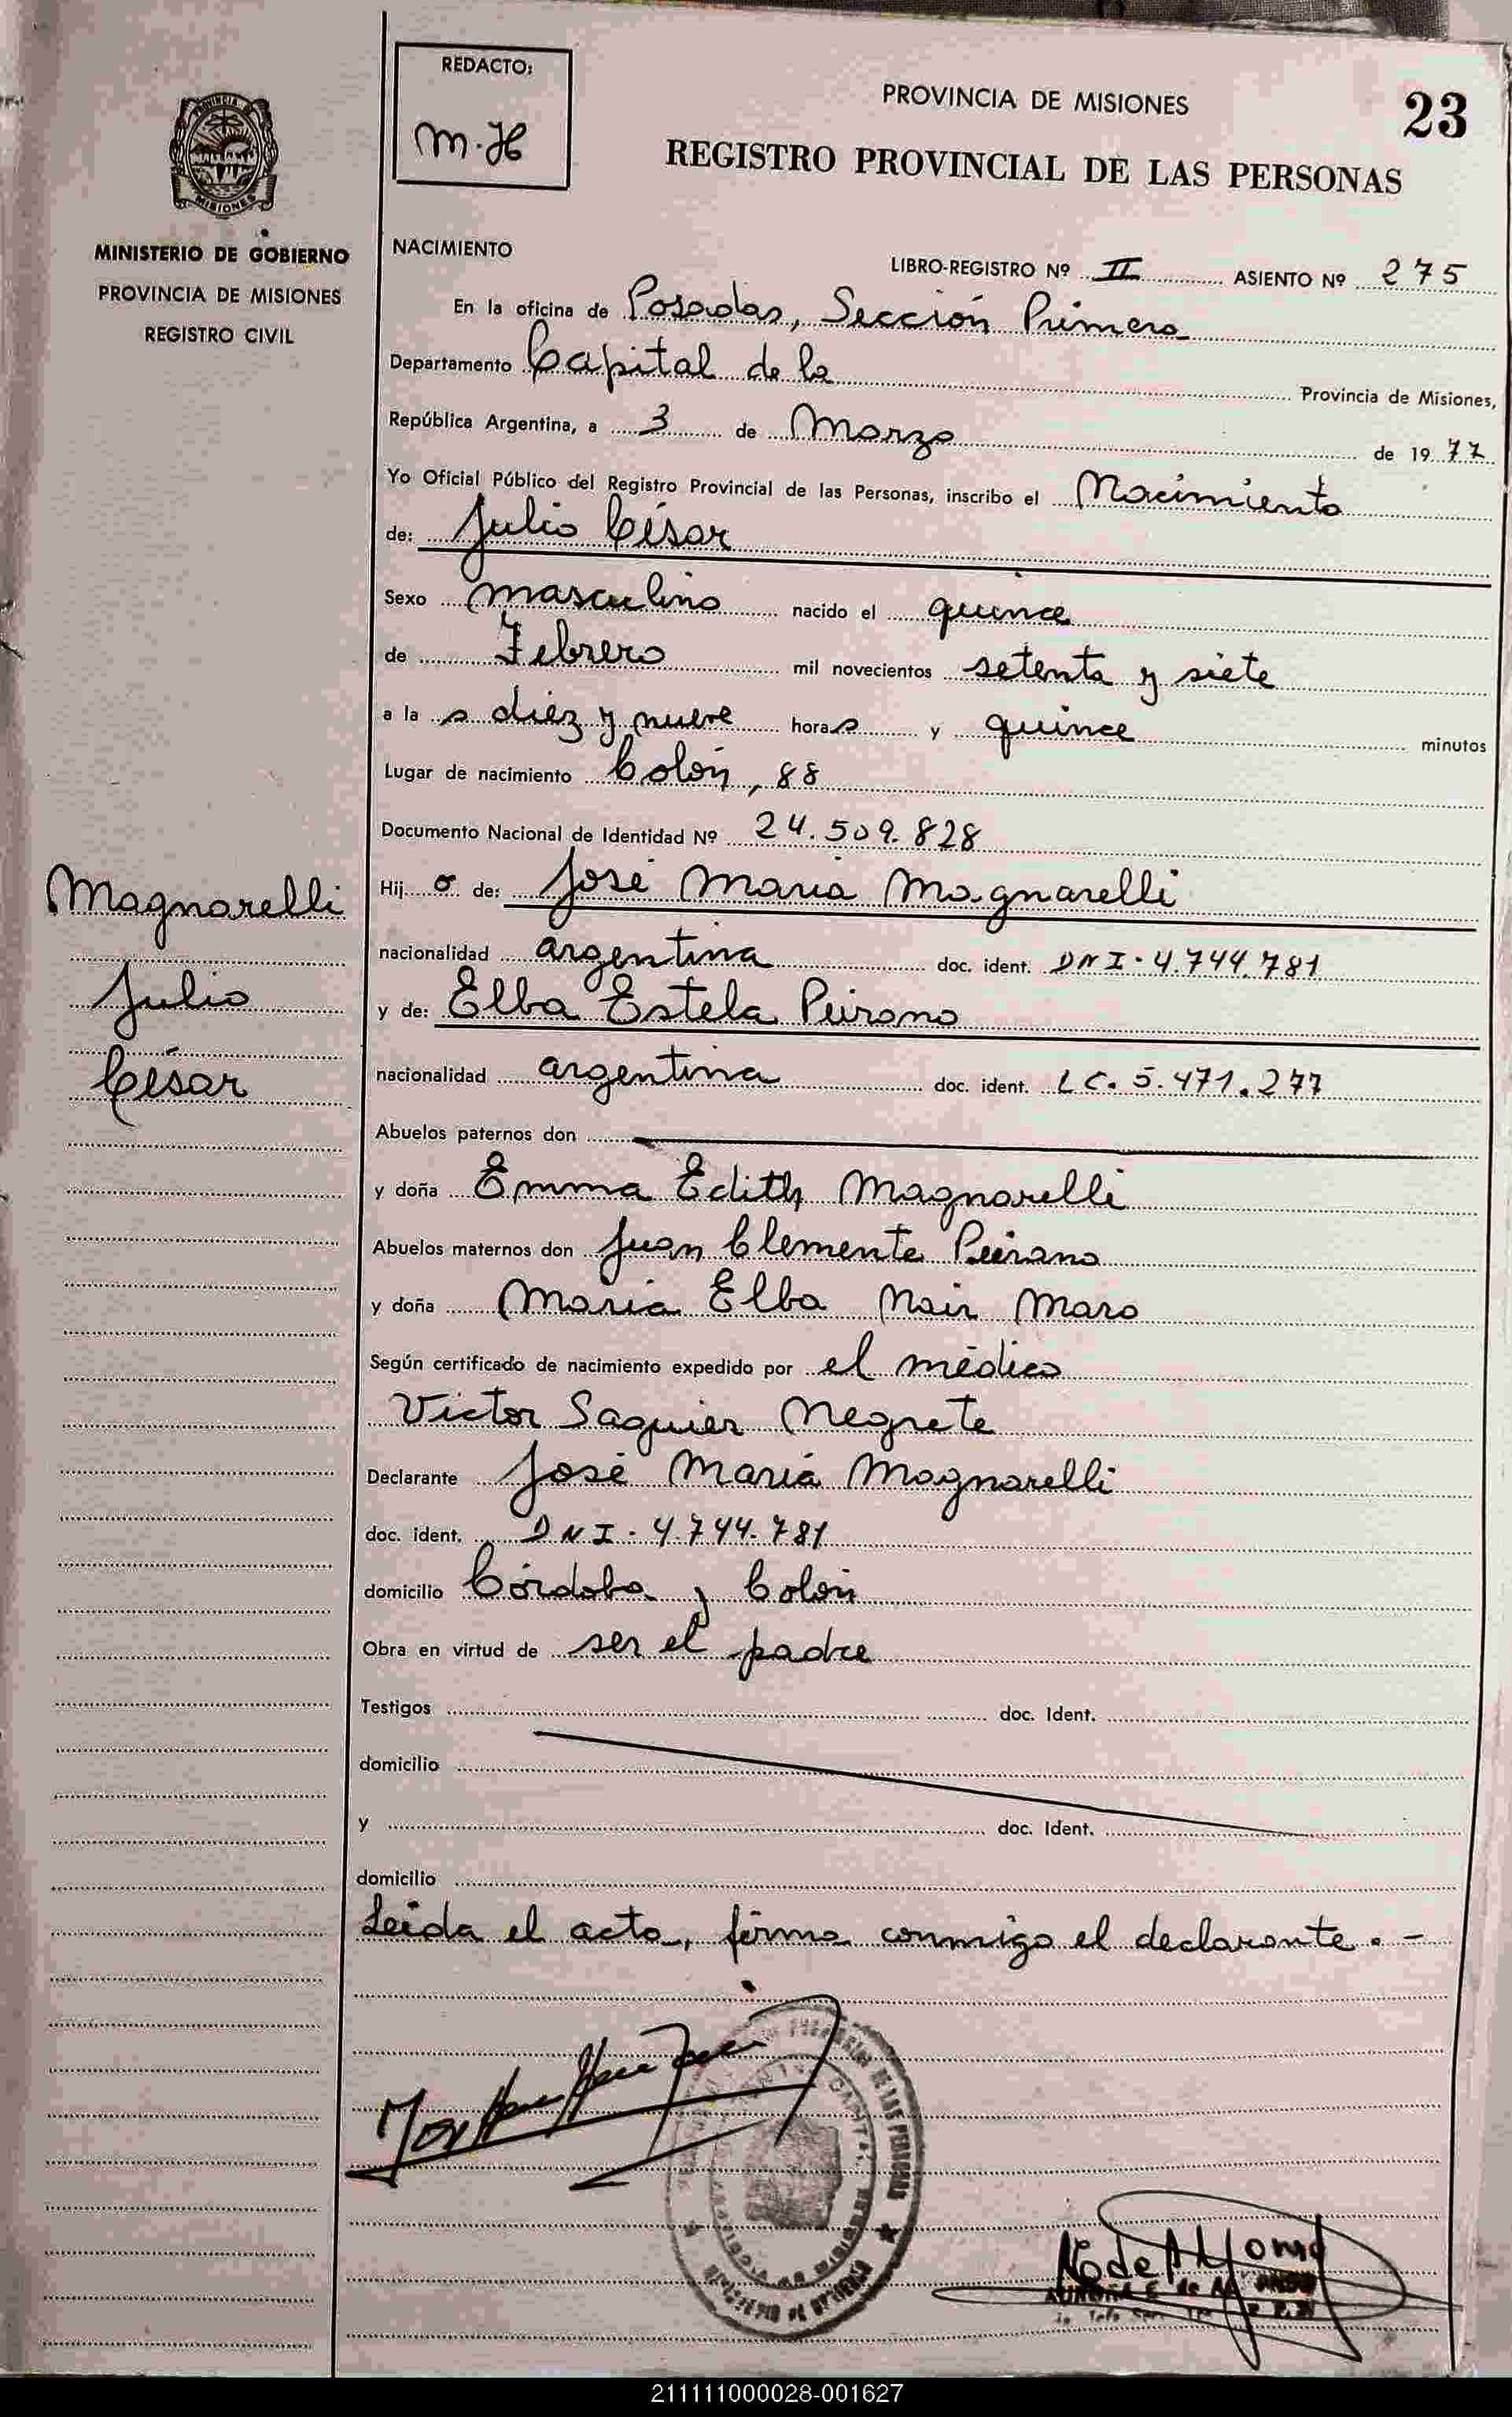 REDACTO:
M.H
PROVINCIA DE MISIONES
23
REGISTRO PROVINCIAL DE LAS PERSONAS
PROVINCIA DE
MISIONES
MINISTERIO DE GOBIERNO
PROVINCIA DE MISIONES
REGISTRO CIVIL
NACIMIENTO
LIBRO-REGISTRO Nº II ASIENTO Nº 275
En la oficina de Posadas, Sección Primera
Departamento Capital de la Provincia de Misiones,
República Argentina, a 3 de Marzo de 1977
Yo Oficial Público del Registro Provincial de las Personas, inscribo el Nacimiento
de: Julio César
Sexo masculino nacido el quince
de Febrero mil novecientos setenta y siete
a la s diez y nueve horas y quince minutos
Lugar de nacimiento Colón, 88
Documento Nacional de Identidad Nº 24.509.828
Hijo de: José María Magnarelli
nacionalidad argentina doc. ident. DNI-4.744.781
y de: Elba Estela Peirano
nacionalidad argentina doc. ident. LC. 5.471.277
Abuelos paternos don
y doña Emma Edith Magnarelli
Abuelos maternos don Juan Clemente Peirano
y doña María Elba Nair Maro
Según certificado de nacimiento expedido por el médico
Victor Saguier Negrete
Declarante José María Magnarelli
doc. ident. DNI-4.744.781
domicilio Córdoba y Colón
Obra en virtud de ser el padre
Testigos doc. Ident.
domicilio
y doc. Ident.
domicilio
Leída el acta, firma conmigo el declarante.-
Magnarelli
Julio
César
DE LAS PERSONAS
MINISTERIO DE GOBIERNO
211111000028-001627